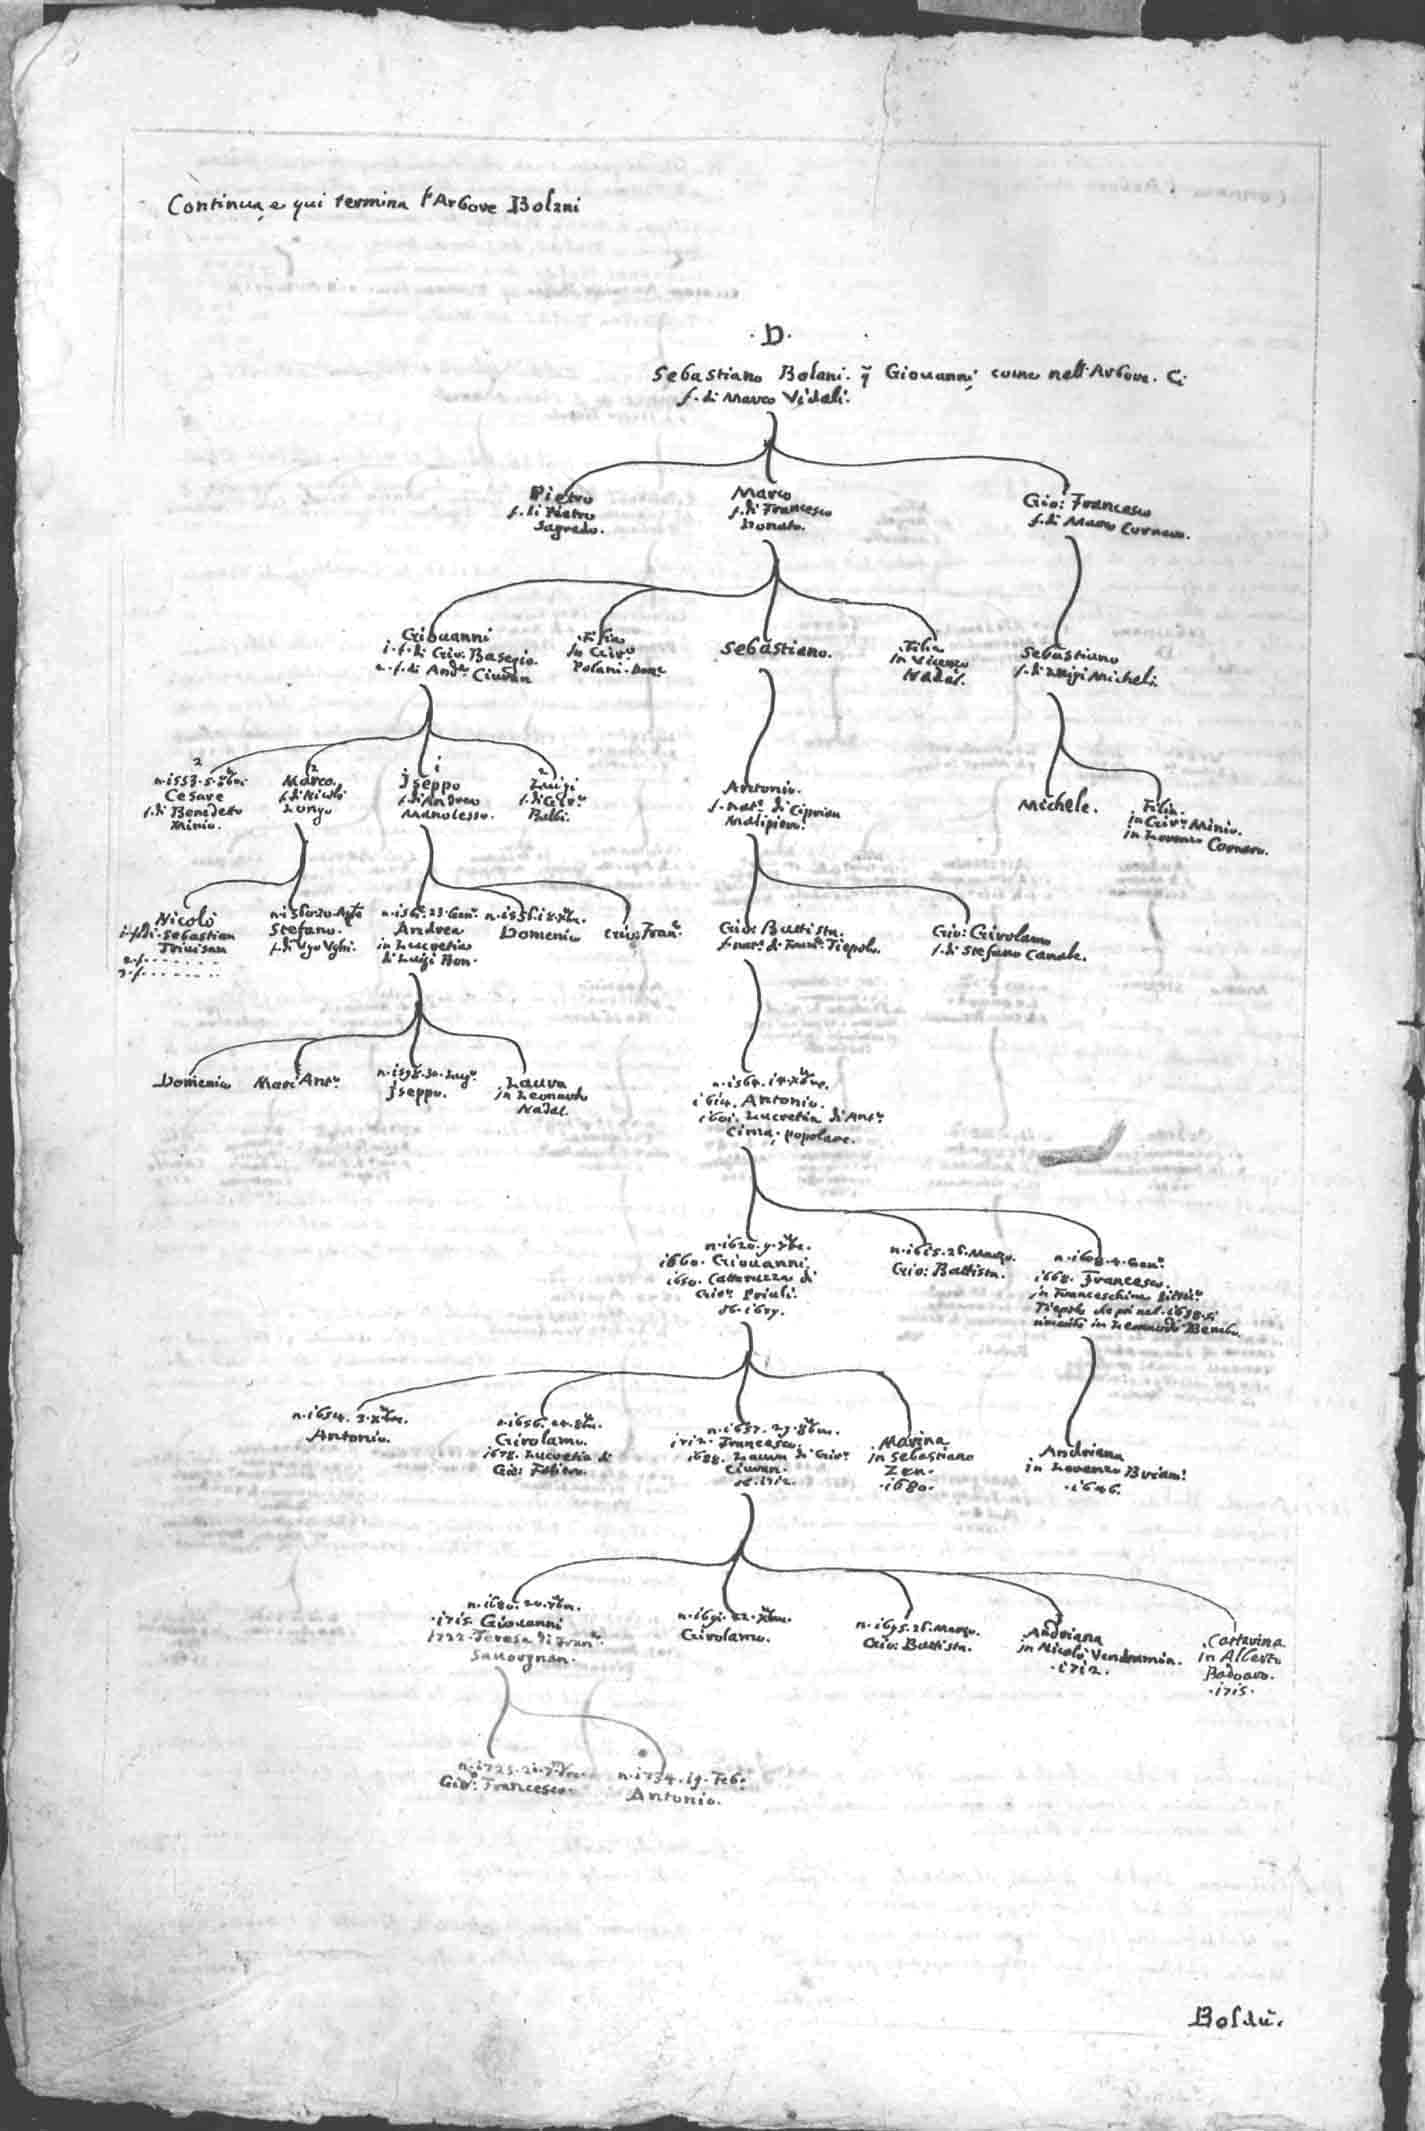 Continua, e qui termina l'Arbore Bolani
.D.
Sebastiano Bolani. q̃ Giouanni, come nell'Arbore. C.
f. di Marco Vidali.
Pietro
f. di Pietro
Sagredo.
Marco
f. di Francesco
Donato.
Gio: Francesco
f. di Marco Cornaro.
Giouanni
i. f. di Giro. Basegio.
2. f. di Andr. Ciuran
Filia
in Giro.
Polani
Sebastiano.
Filia
in Vicenzo
Nadal.
Sebastiano
f. di Luigi Micheli.
2
n. 1553. 5.
Cesare
f. di Benedeto
Minio.
2
Marco
f. di Nicolò
Longo
i
Jseppo
f. di Andrea
Manolesso.
2
Luigi
f. di Giro.
Balbi.
Antonio.
f. natl. di Ciprian
Malipiero.
Michele.
Filia.
in Giro. Minio.
in Lorenzo Cornaro.
Nicolò
i. f. di Sebastian
Triuisan
2. f. . . . . . .
3. f. . . . . . .
n. 1560. 20. Agto
Stefano.
f. di Ugo
23. Genr.
Andrea
in Lucretia
di Luigi Bon.
Domenico
Gio: Franco.
Gio: Battista.
f. natl. di Tiepolo.
Gio: Girolamo
f. di Stefano Canale.
Domenico
Marc'Anto.
30. Lugo.
Jseppo.
Laura
in Leonardo
Nadal.
n. 1564. 14. Xbre.
1614. Antonio.
1601. Lucretia di Anto.
Cima, popolare.
n. 1620. 9.
1660. Giouanni,
1650. Cattaruzza di
Giro. Priuli.
n. 1615. 26. Marzo.
Gio: Battista.
4. Genr.
1668. Francesco.
in Franceschina
Tiepolo che poi nel 1698 si
in Leonardo Bembo.
n. 1654. 3. Xbre.
Antonio.
n. 1656. 24. 8bre.
Girolamo.
1678. Lucretia di
Gio:
n. 1657. 27. 8bre.
1712. Francesco.
1688. Laura di Giro.
Ciuran.
ob. 1712.
Marina
in Sebastiano
Zen.
.1680.
Andriana
in Lorenzo
.1646.
20.
.1715. Giouanni
1722. Teresa di Franco.
Sauorgnan.
n. 1691. 22. Xbre.
Girolamo.
n. 1695. 26. Marzo.
Gio: Battista.
Andriana
in Nicolò Vendramin.
.1712.
Cattarina
in Alberto
Badoaro.
.1715.
n. 1725. 21. 7bre.
Gio: Francesco.
n. 1734. 19. Feb.
Antonio.
Boldù.